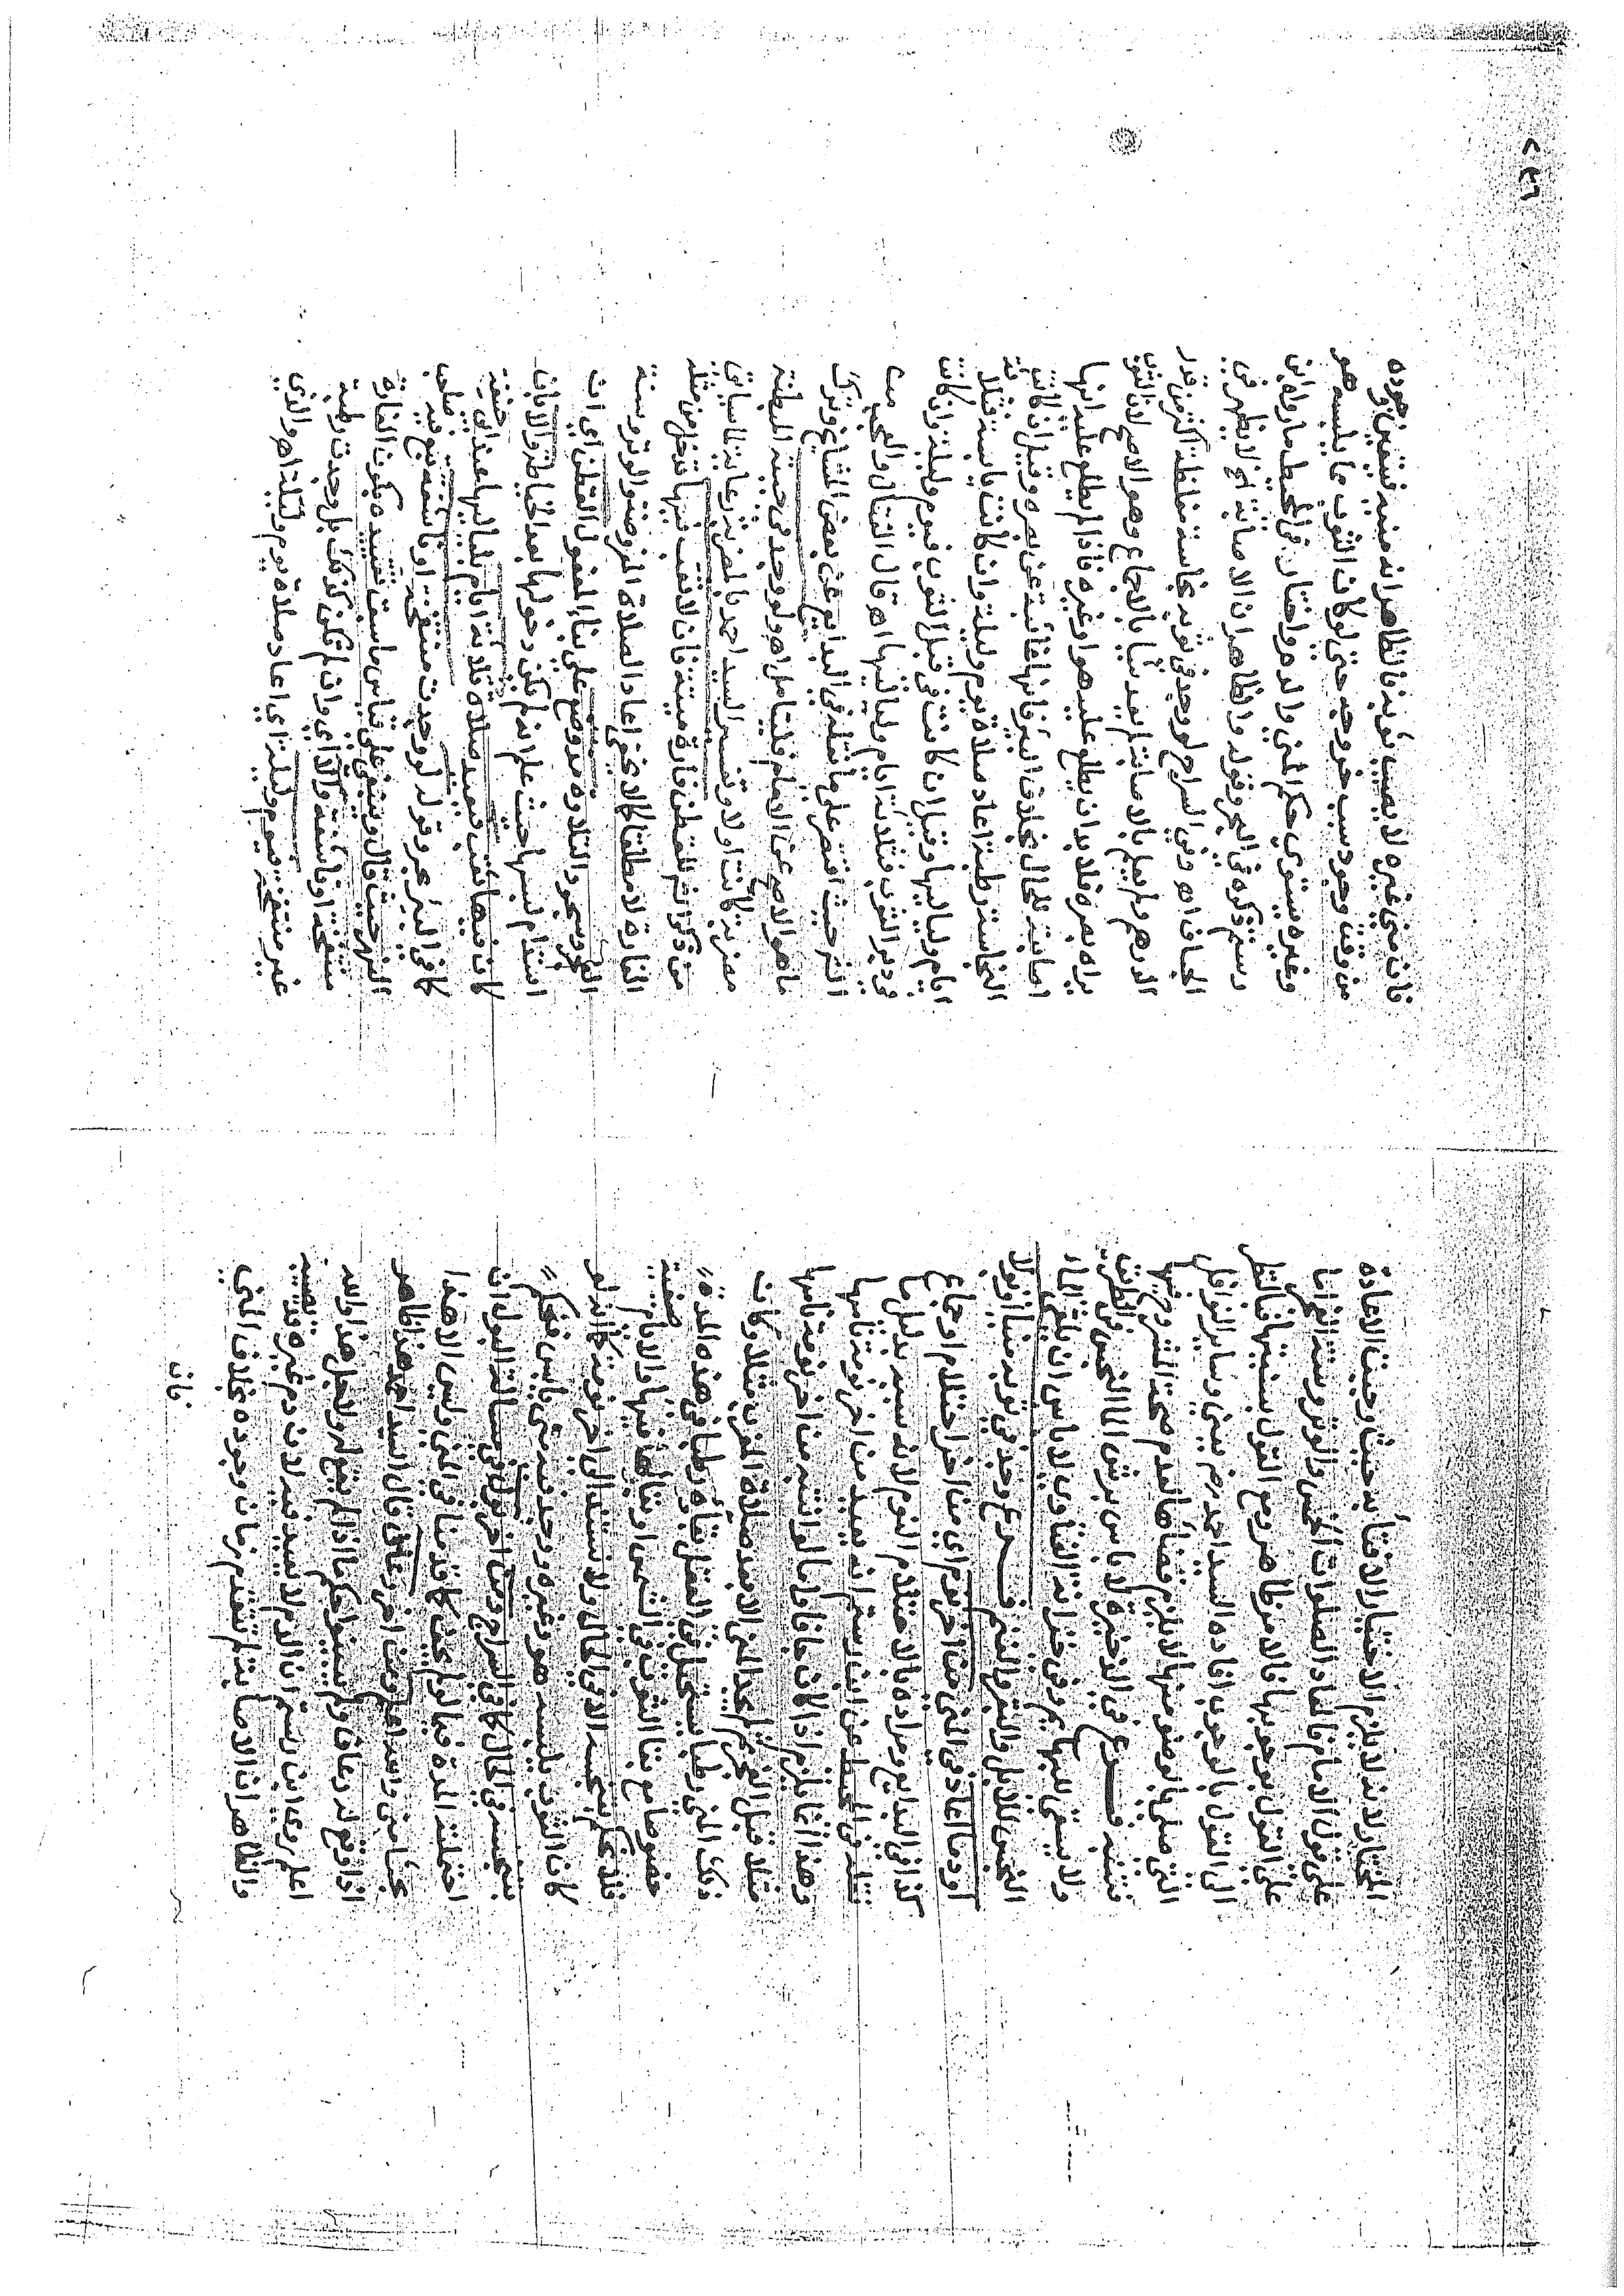 المختار لانه لا يلزم الاختيار الافتابه حيث وجبت الاعادة
على قول الامام فالمعاد الصلوات الخمس والوتر وسنة الفجر اما
على القول بوجوبها فالامر ظاهر ومع القول بسنيتها فبالنظر
الى القول بالوجوب افاده السيد احمد رحم يعني وساير النوافل
التي صلى بالوضو منها لا يلزم قضاها لعدم صحة الشروع فيها
فتنبه فـــرع في الذخيرة لا باس برش الما النجس في الطريق
ولا يسقى للبهايم وفي خزانة الفتاوى لا باس ان يلقى الماء
النجس للابل والبقر والغنم فـــرع وجد في ثوبه منيا او بولا
او دما اعاد في المني من اخر نوم اي من اخر احتلام او جماع
كذا في البدايع ومراده بالاحتلام النوم لانه سببه بدليل ما
نقله في المحيط عن ابن رستم انه يعيد من اخر نومة نامها
وهذا انما يلزم اذا كان جافا وما لو انتبه من اخر نومة نامها
مثلا قبل الفجر ثم لم يجد المني الا بعد صلاة المغرب مثلا وكان
ذلك المني رطبا يستحيل في العقل بقاؤه رطبا في هذه المدة
خصوصا مع بقا الثوب في الشمس او بقا لابسها فيها والايام صيفية
فلا يحكم بنجسه الا في الحال ولا يستند الى اخر نومة كما انه لو
كان الثوب يلبسه هو وغيره ووجد فيه مني يابس فيحكم
بنجسه في الحال كما في السراج ومن اخر بول في مسالة البول ان
احتملته المدة فيما لو لم يجف كما قدمنا في المني وليس الا هذا
بجنا مني واحد اعلم ومن اخر رعاف قال السيد احمد هذا ظاهر
اذا وقع له رعاف ولم يستبن الحكم ما اذا لم يقع له ولاجل هذا والله
اعلم روى ابن رستم ان الدم لا يعيد فيه لان دم غيره قد يصيبه
والظاهر ان الاصابة لم تتقدم زمان وجوده بخلاف المني
فان
٢٤٦
فان مني غيره لا يصيب ثوبه فالظاهر انه منيه فيعتبر وجوده
من وقت وجود سبب خروجه حتى لو كان الثوب مما يلبسه هو
وغيره يستوي حكم المني والدم واختار في المحيط ما رواه ابن
رستم ذكره في البحر وقوله والظاهر ان الاصابة الخ لا يظهر في
الجاف اهـ وفي السراج لو وجد في ثوبه نجاسة مغلظة اكثر من قدر
الدرهم ولم يعلم بالاصابة لم يعد شيا بالاجماع وهو الاصح لان الثوب
يراه بصره فلا بد ان يطلع عليه هو او غيره فاذا لم يطلع عليه انها
اصابته للحال بخلاف البئر فانها غائبة عن بصره وقيل ان كانت
النجاسة رطبة اعاد صلاة يوم وليلة وان كانت يابسة فثلاثة
ايام ولياليها وقيل ان كانت في قبل الثوب فيوم وليلة وان كانت
في دبر الثوب فثلاثة ايام ولياليها اهـ قال الشيخ والعجب من
الشرح حيث اقتصر على ما نقله في البدايع عن بعض المشايخ وترك
ما هو الاصح عن الامام فليتامل اهـ ولو وجد في جيبه المبطنة
معربة كانت او لا وتفسير السيد احمد بالمعربة رعاية لما سياتي
من ذكر نزع القطن فارة ميتة فان لا ثقب فيها تدخل من مثله
الفارة لا مطلقا كما لا يخفى اعاد الصلاة المفروضة والوتر وسنة
الفجر وسجود التلاوة مذ وضع على بناء المفعول القطن اي ان
استدام لبسها حيث علم انه لم يمكن دخولها بعد الخياطة والا بان
كان فيها ثقب فيعيد صلاة ثلاثة ايام بلياليها عند ابي حنيفة
كما في البئر بحر وقوله لو وجدت منتفخة او ناشفة تبع فيه صاحب
النهر حيث قال وينبغي على قياس ما سبق تقييده بكون الفارة
منتفخة او ناشفة والا اي وان لم تكن كذلك بل وجدت رطبة
غير منتفخة فيوم وليلة اي اعاد صلاة يوم وليلة اهـ والذي